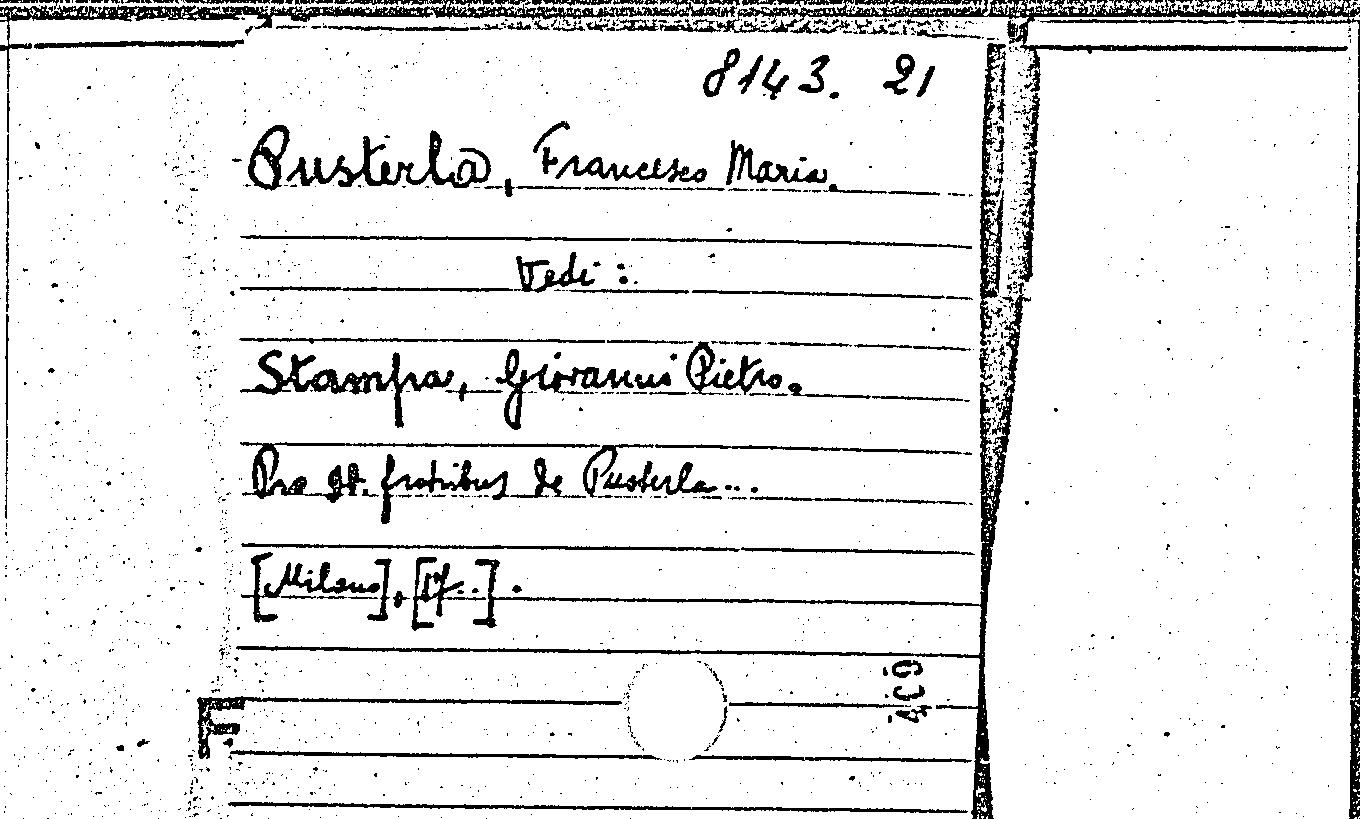 8143. 21
Pusterla, Francesco Maria.
Vedi:
Stampa, Giovanni Pietro.
Pro dd. fratribus de Pusterla...
[Milano], [17..].
409